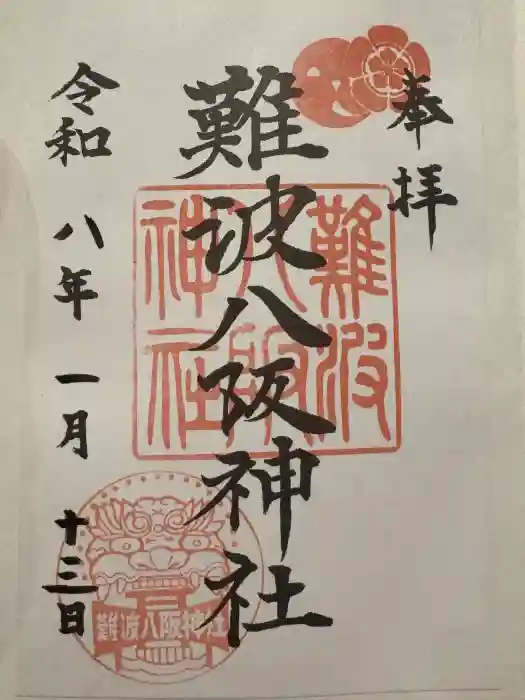 奉拝
難波八阪神社
難波八阪神社
令和八年一月十三日
難波八阪神社